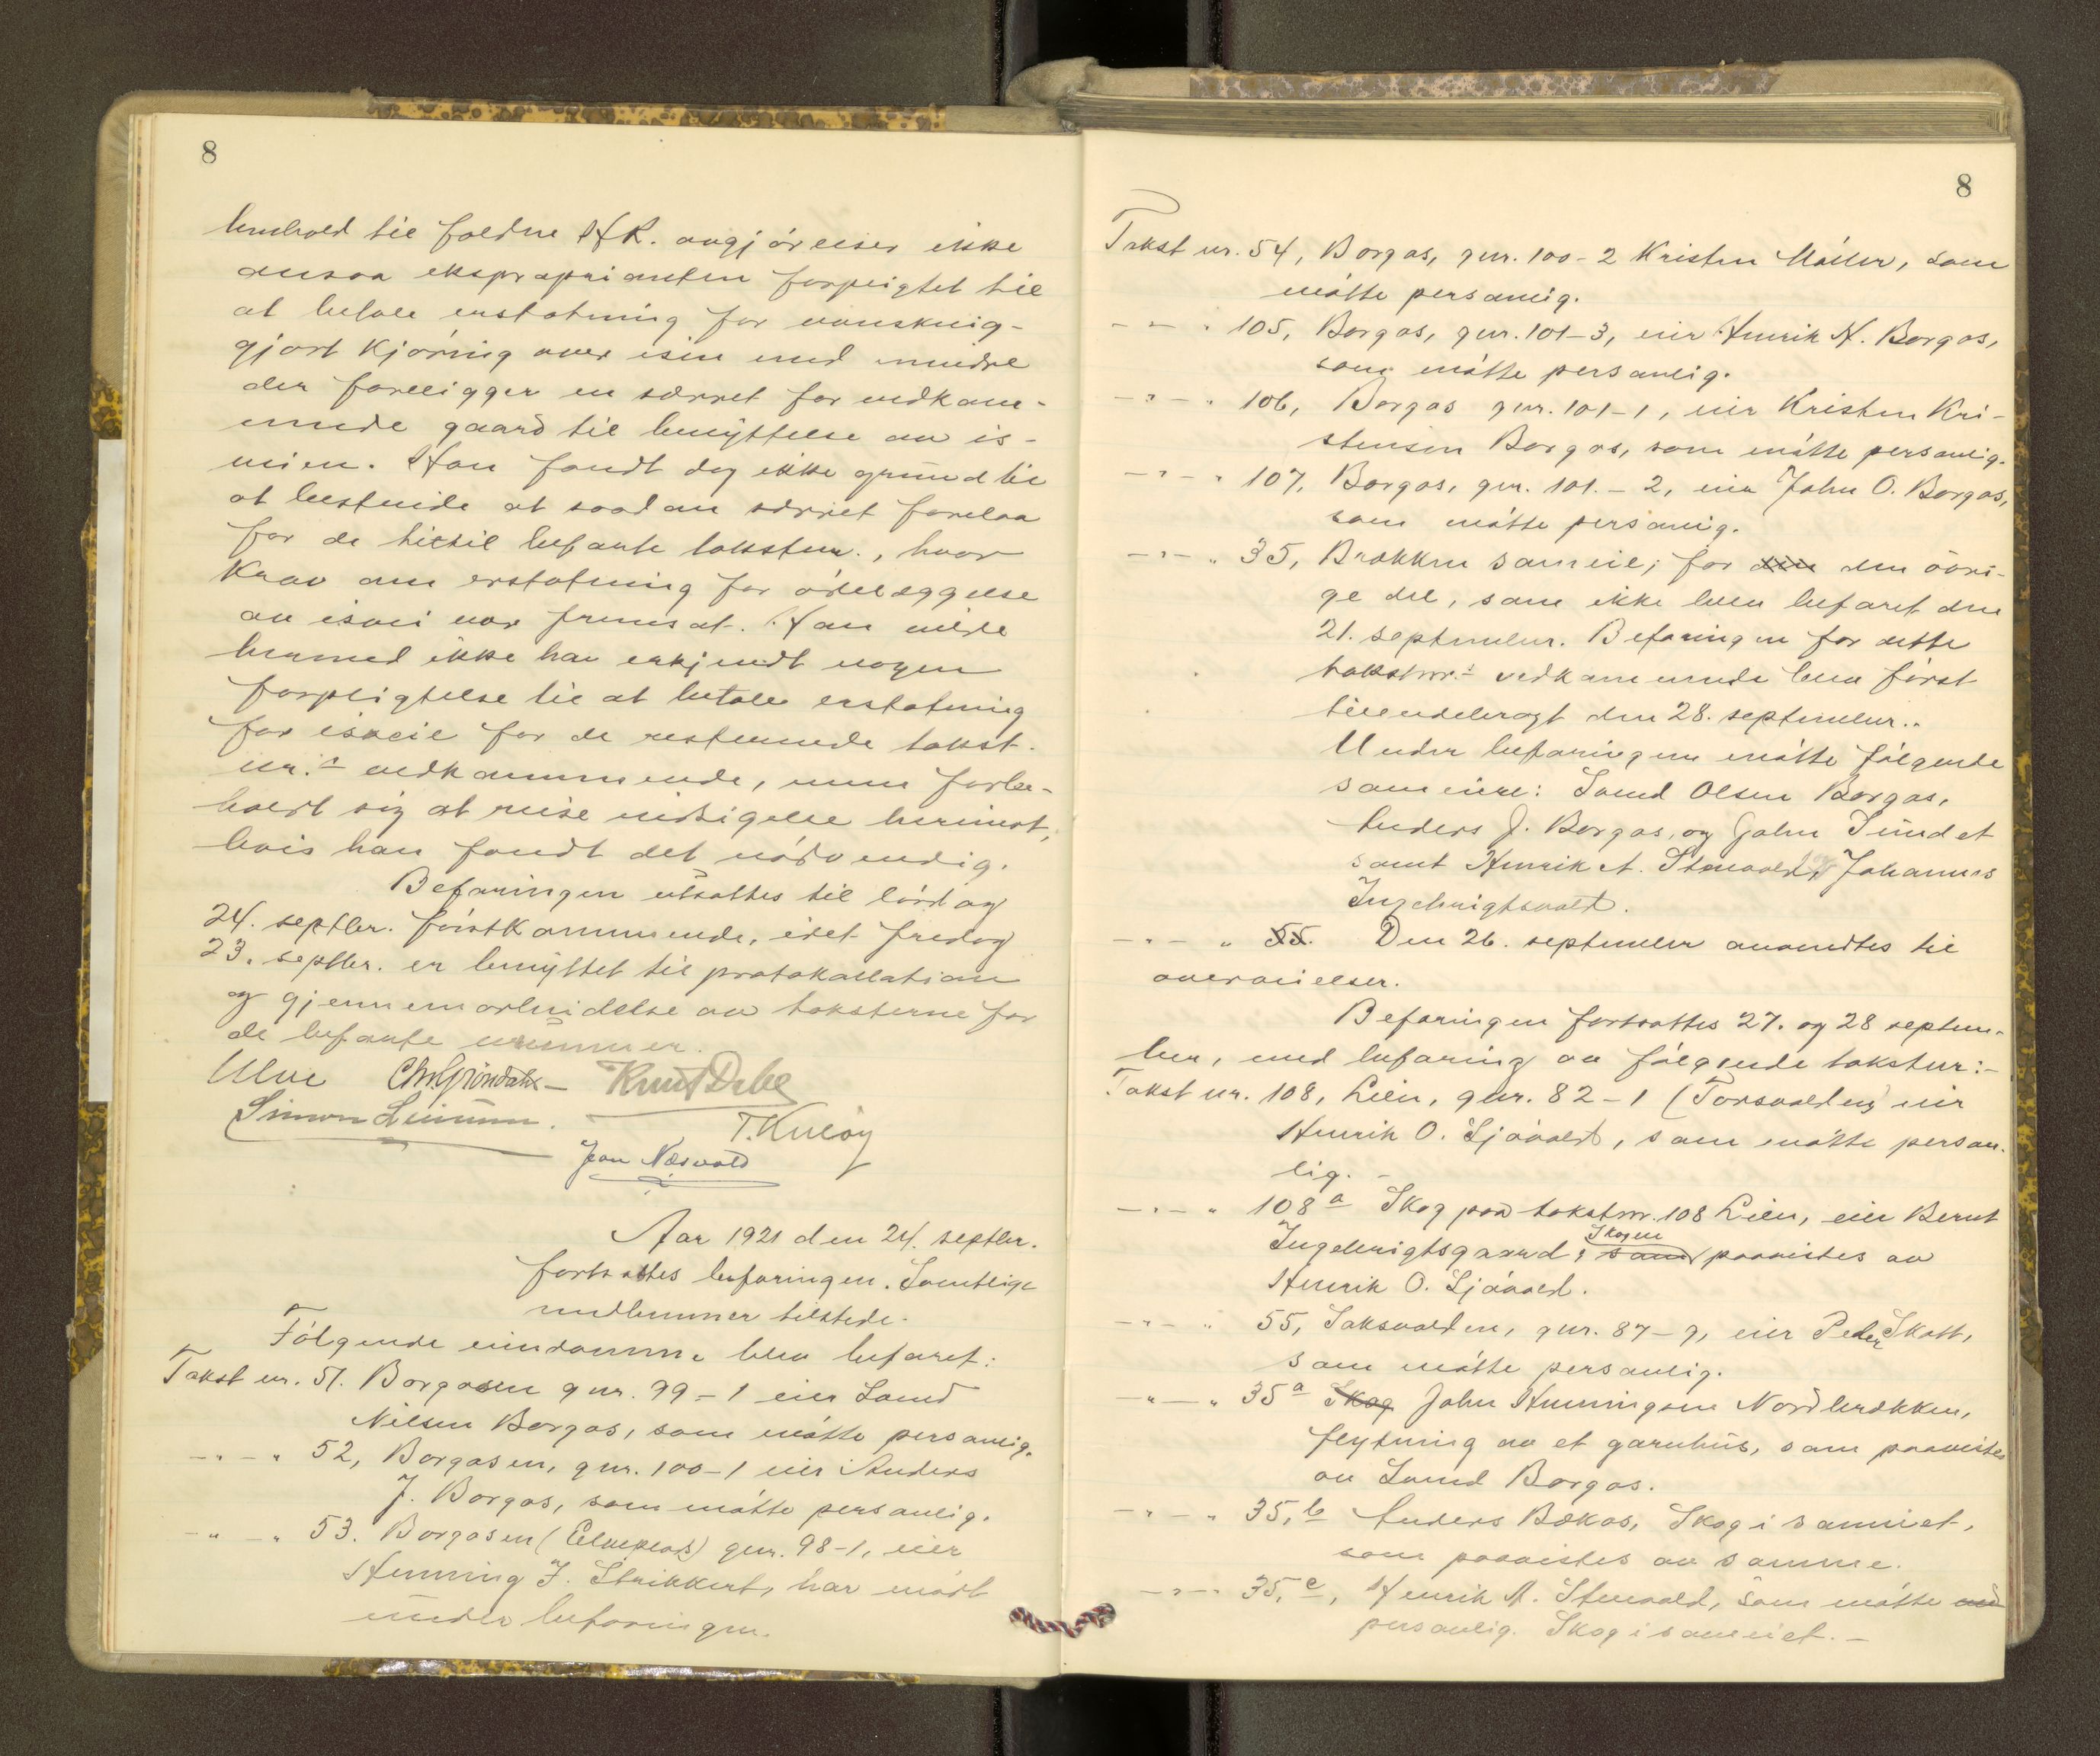 8
henhold til faldne H.R. avgjörelser ikke
ansaa eksproprianten forpligtet til
at betale erstatning for vanskelig-
gjort kjöring over isen med mindre
der foreligger en særret for vedkom-
mende gaard til benyttelse av is-
veien. Han fandt dog ikke grund til
at bestride at saadan særret forelaa
for de hittil befarte takstnr., hvor
krav om erstatning for ödelæggelse
av isvei var fremsat. Han vilde
hermed ikke ha erkjendt nogen
forpligtelse til at betale erstatning
for isveie for de resterende takst-
nr.s vedkommende, men forbe-
holdt sig at reise indsigelse herimot,
hvis han fandt det nödvendig.
Befaringen utsattes til lördag
24. septbr. förstkommende, idet fredag
23. septbr. er benyttet til protokollation
og gjennemarbeidelse av taksterne for
de befarte nummer.
Chr. Gröndahl
Simon
Aar 1921 den 24. septbr.
fortsattes befaringen. Samtlige
medlemmer tilstede.
Fölgende eiendomme blev befaret:
Takst nr. 51. Borgosen gnr. 99-1 eier Lornd
Nilsen Borgos, som mötte personlig.
-"-" 52, Borgosen, gnr. 100-1 eier Anders
J. Borgos, som mötte personlig.
-"-" 53. Borgosen (Elveplads) gnr. 98-1, eier
Henning J. Strikkert, har mött
under befaringen.
8
Takst nr. 54, Borgos, gnr. 100-2 Kristen Möller, som
mötte personlig.
-"-" 105, Borgos, gnr. 101-3, eier Henrik H. Borgos,
som mötte personlig.
-"-" 106, Borgos gnr. 101-1, eier Kristen Kri-
stensen Borgos, som mötte personlig.
-"-" 107, Borgos, gnr. 101.-2, eier John O. Borgos,
som mötte personlig.
-"-" 35, Brækken sameie; for den övri-
ge del, som ikke blev befaret den
21. september. Befaringen for dette
takstnr.s vedkommende blev först
tilendebragt den 28. september..
Under befaringen mötte fölgende
sameiere: Olsen Borgos,
Anders J. Borgos, og John Sundet
samt Henrik A. Stenvold, Johannes
Ingebrigtsvold.
-"-" 55. Den 26. september anvendtes til
overveielser.
Befaringen fortsattes 27. og 28 septem-
ber, med befaring av fölgende takstnr:-
Takst nr. 108, Lien, gnr. 82-1 (Torsvolden) eier
Henrik O. Sjövold, som mötte person-
lig.-
-"-" 108a Skog paa takstnr. 108 Lien, eier Bernt
Ingebrigtsgaard; som Skogen paavistes av
Henrik O. Sjövold.
-"-" 55, Saksvolden, gnr. 87-9, eier Peder Skott,
som mötte personlig.
-"-" 35a Skog John Henningsen Nordbrækken,
flytning av et garnhus, som paavistes
av Borgos.
-"-" 35,b Anders Bækos, Skog i sameiet,
som paavistes av samme.
-"-" 35,c, Henrik A. Stenvold, som mötte
personlig. Skog i sameiet.-